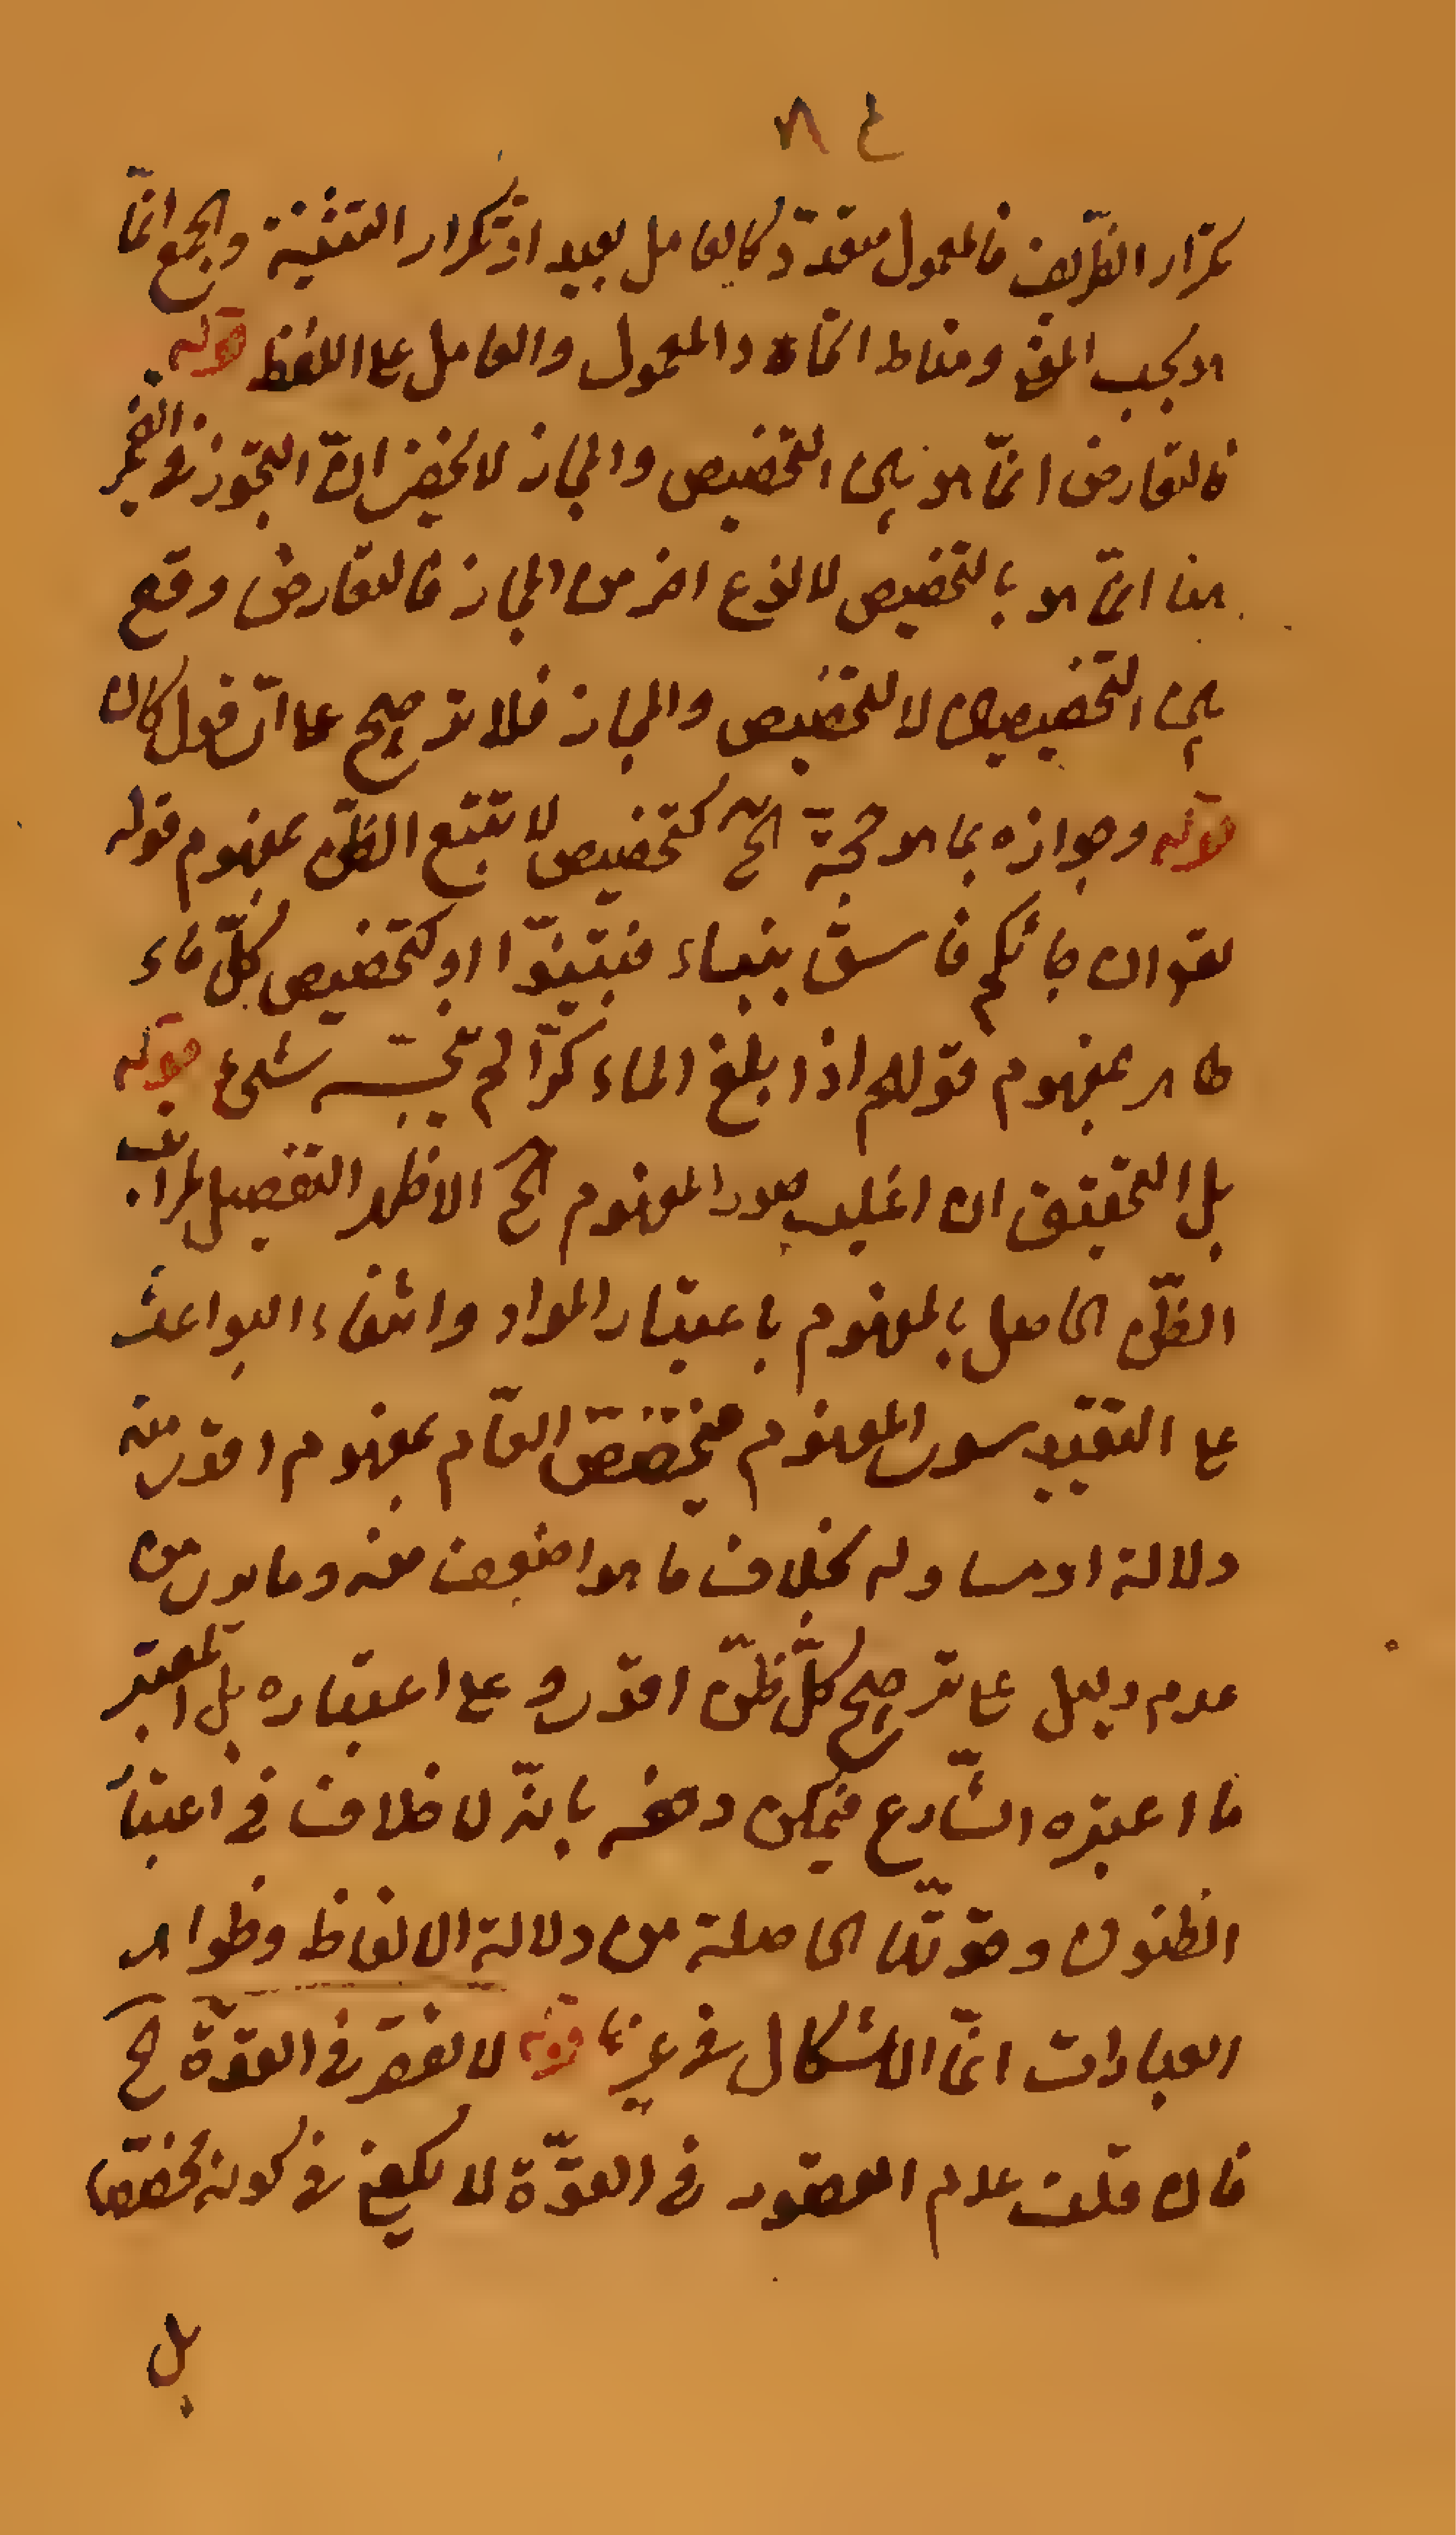 ٨٤
كرّار الظريف فالمعمول متعدّد كالعامل بعيد اذ تكرار التثنية والجمع انّما
هو بحسب المعنى ومناط اتّحاد المعمول والعامل على اللفظ قوله
فالتعارض انّما هو بين التخصيص والمجاز لا يخفى انّ التجوّز في الضمير
هنا انّما هو بالتخصيص لا لنوع اخر من المجاز فالتعارض وقع
بين التخصيصين لا للتخصيص والمجاز فلا ترجيح على انّ نقول كان
قوله وجوازه بما هو حجّة الخ كتخصيص لا تتّبع الظنّ بمفهوم قوله
تعو ان جائكم فاسق بنباء فتبيّنوا او كتخصيص كلّ ماء
طاهر بمفهوم قولهم اذا بلغ الماء كرّا لم ينجّسه شىء قوله
بل التحقيق ان اغلب صور المفهوم الخ الاظهر التفصيل لمراتب
الظنّ الحاصل بالمفهوم باعتبار المواد وانتفاء البواعث
على التقييد سوى المفهوم فيخصّص العامّ بمفهوم اقوى منه
دلالة او مساو له بخلاف ما هو اضعف منه وما يرى من
عدم دليل على ترجيح كلّ ظنّ اقوى و على اعتباره بل المعتبر
ما اعتبره الشّارع فيمكن دفعه بانّه لا خلاف في اعتبار
الظنون وقوّتها الحاصلة من دلالة الالفاظ وظواهر
العبارات انّما الاشكال في غيرها قوله لا يقصر في القوّة الخ
فان قلت عدم القصور في القوّة لا يكفي في كونه مخصّصا
بل